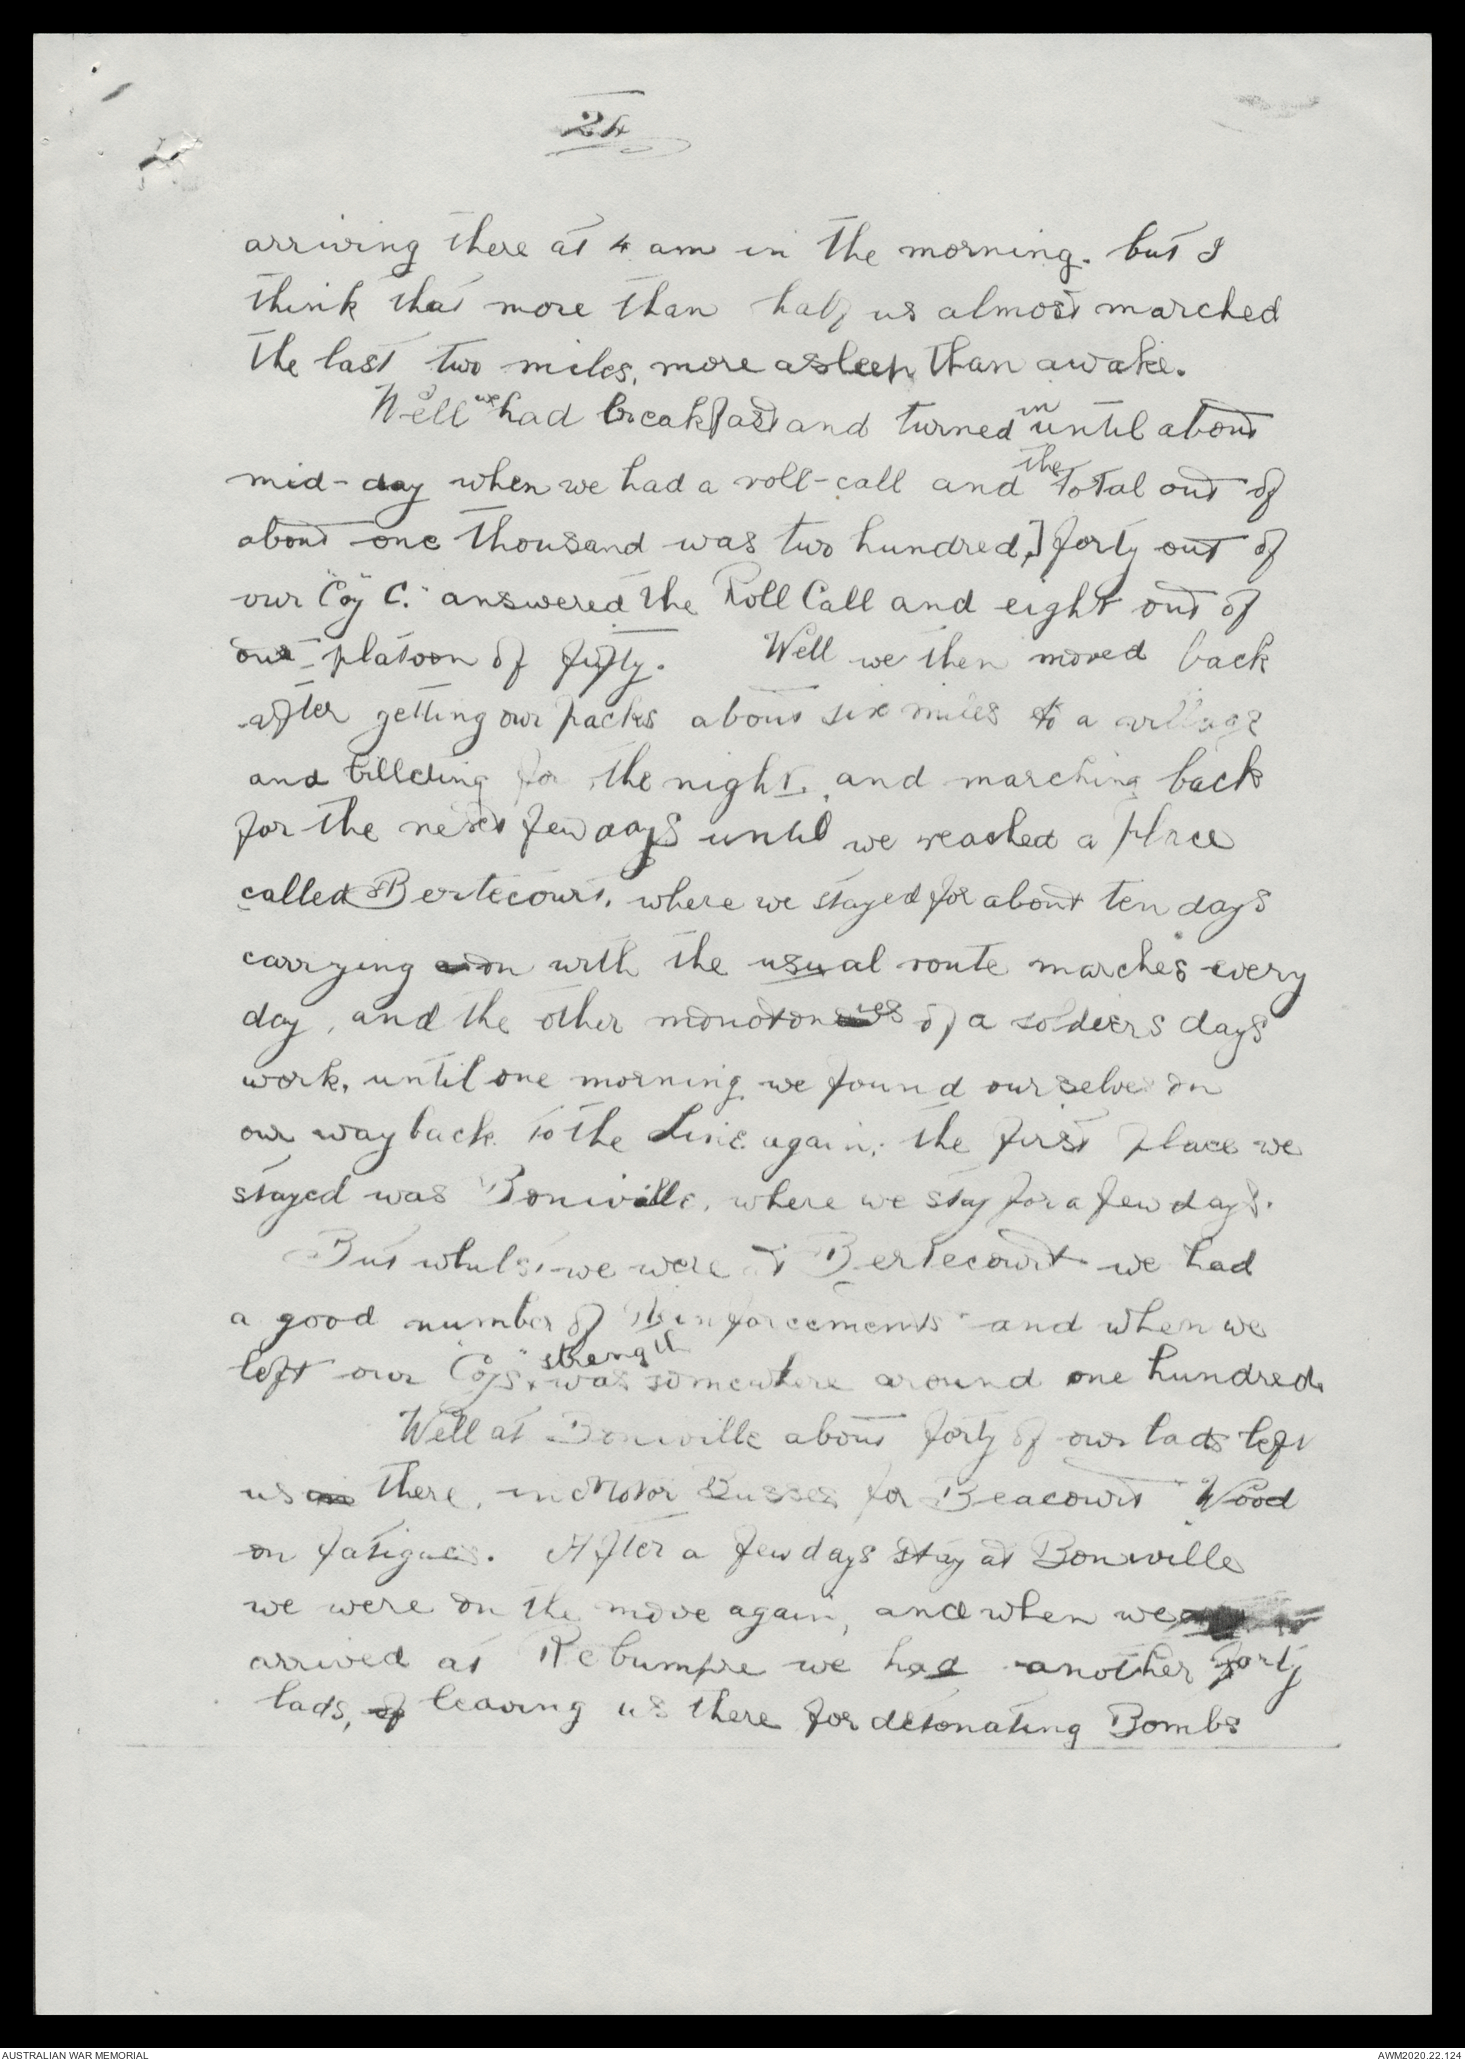 24
arriving there at 4 am in the morning. but I
think that more than half us almost marched
the last two miles, more asleep than awake.
Well we had breakfast and turned in until about
mid-day when we had a roll-call and the total out of
about one thousand was two hundred,] forty out of
our "Coy C." answered the Roll Call and eight out of
our platoon of fifty. Well we then moved back
after getting our packs about six miles to a village
and billeting for the night, and marching back
for the next few days until we reached a place
called Bertecourt, where we stayed for about ten days
carrying on with the usual route marches every
day, and the other monotonies of a soldiers days
work, until one morning we found ourselves on
our way back to the Line again, the first place we
stayed was Boniville, where we stay for a few days.
But whilst we were at Bertecourt we had
a good number of Reinforcements and when we
left our "Coys" strength was somewhere around one hundred.
Well at Boniville about forty of our lads left
us there, in Motor Busses for Beacourt Wood
on fatigues. After a few days stay at Boniville
we were on the move again, and when we
arrived at Rebumpre we had another forty
lads, of leaving us there for detonating Bombs
AUSTRALIAN WAR MEMORIAL
AWM2020.22.124